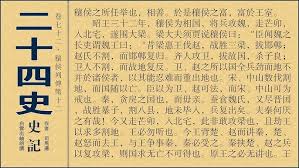 卷七十二·穰侯列傳第十二
二十四史
史記
穰侯之所任舉也,相善,於是穰侯之富,富於王室。
昭王三十二年,穰侯為相國,將兵攻魏,走芒卯,
入北宅,遂圍大梁。梁大夫須賈說穰侯曰:“臣聞魏之長
史謂魏王曰:‘昔梁惠王伐趙,戰勝三梁,拔邯鄲;
趙氏不割,而邯鄲復歸。齊人攻衛,拔故國,殺子良;
衛人不割,而故地復反。衛、趙之所以國全兵勁而地不
并於諸侯者,以其能忍難而重出地也。宋、中山數伐割
地,而國隨以亡。臣以為衛、趙可法,而宋、中山可為
戒也。秦,貪戾之國也,而毋親。蠶食魏氏,又盡晉國
,戰勝暴子,割八縣,地未畢入,兵復出矣。夫秦何厭
之有哉!今又走芒卯,入北宅,此非敢攻梁也,且劫王
以求多割地。王必勿聽也。今王背楚、趙而講秦,楚、
趙怒而去王,與王爭事秦,秦必受之。秦挾楚、趙之兵
以復攻梁,則國求無亡不可得也。願王之必無講也。王